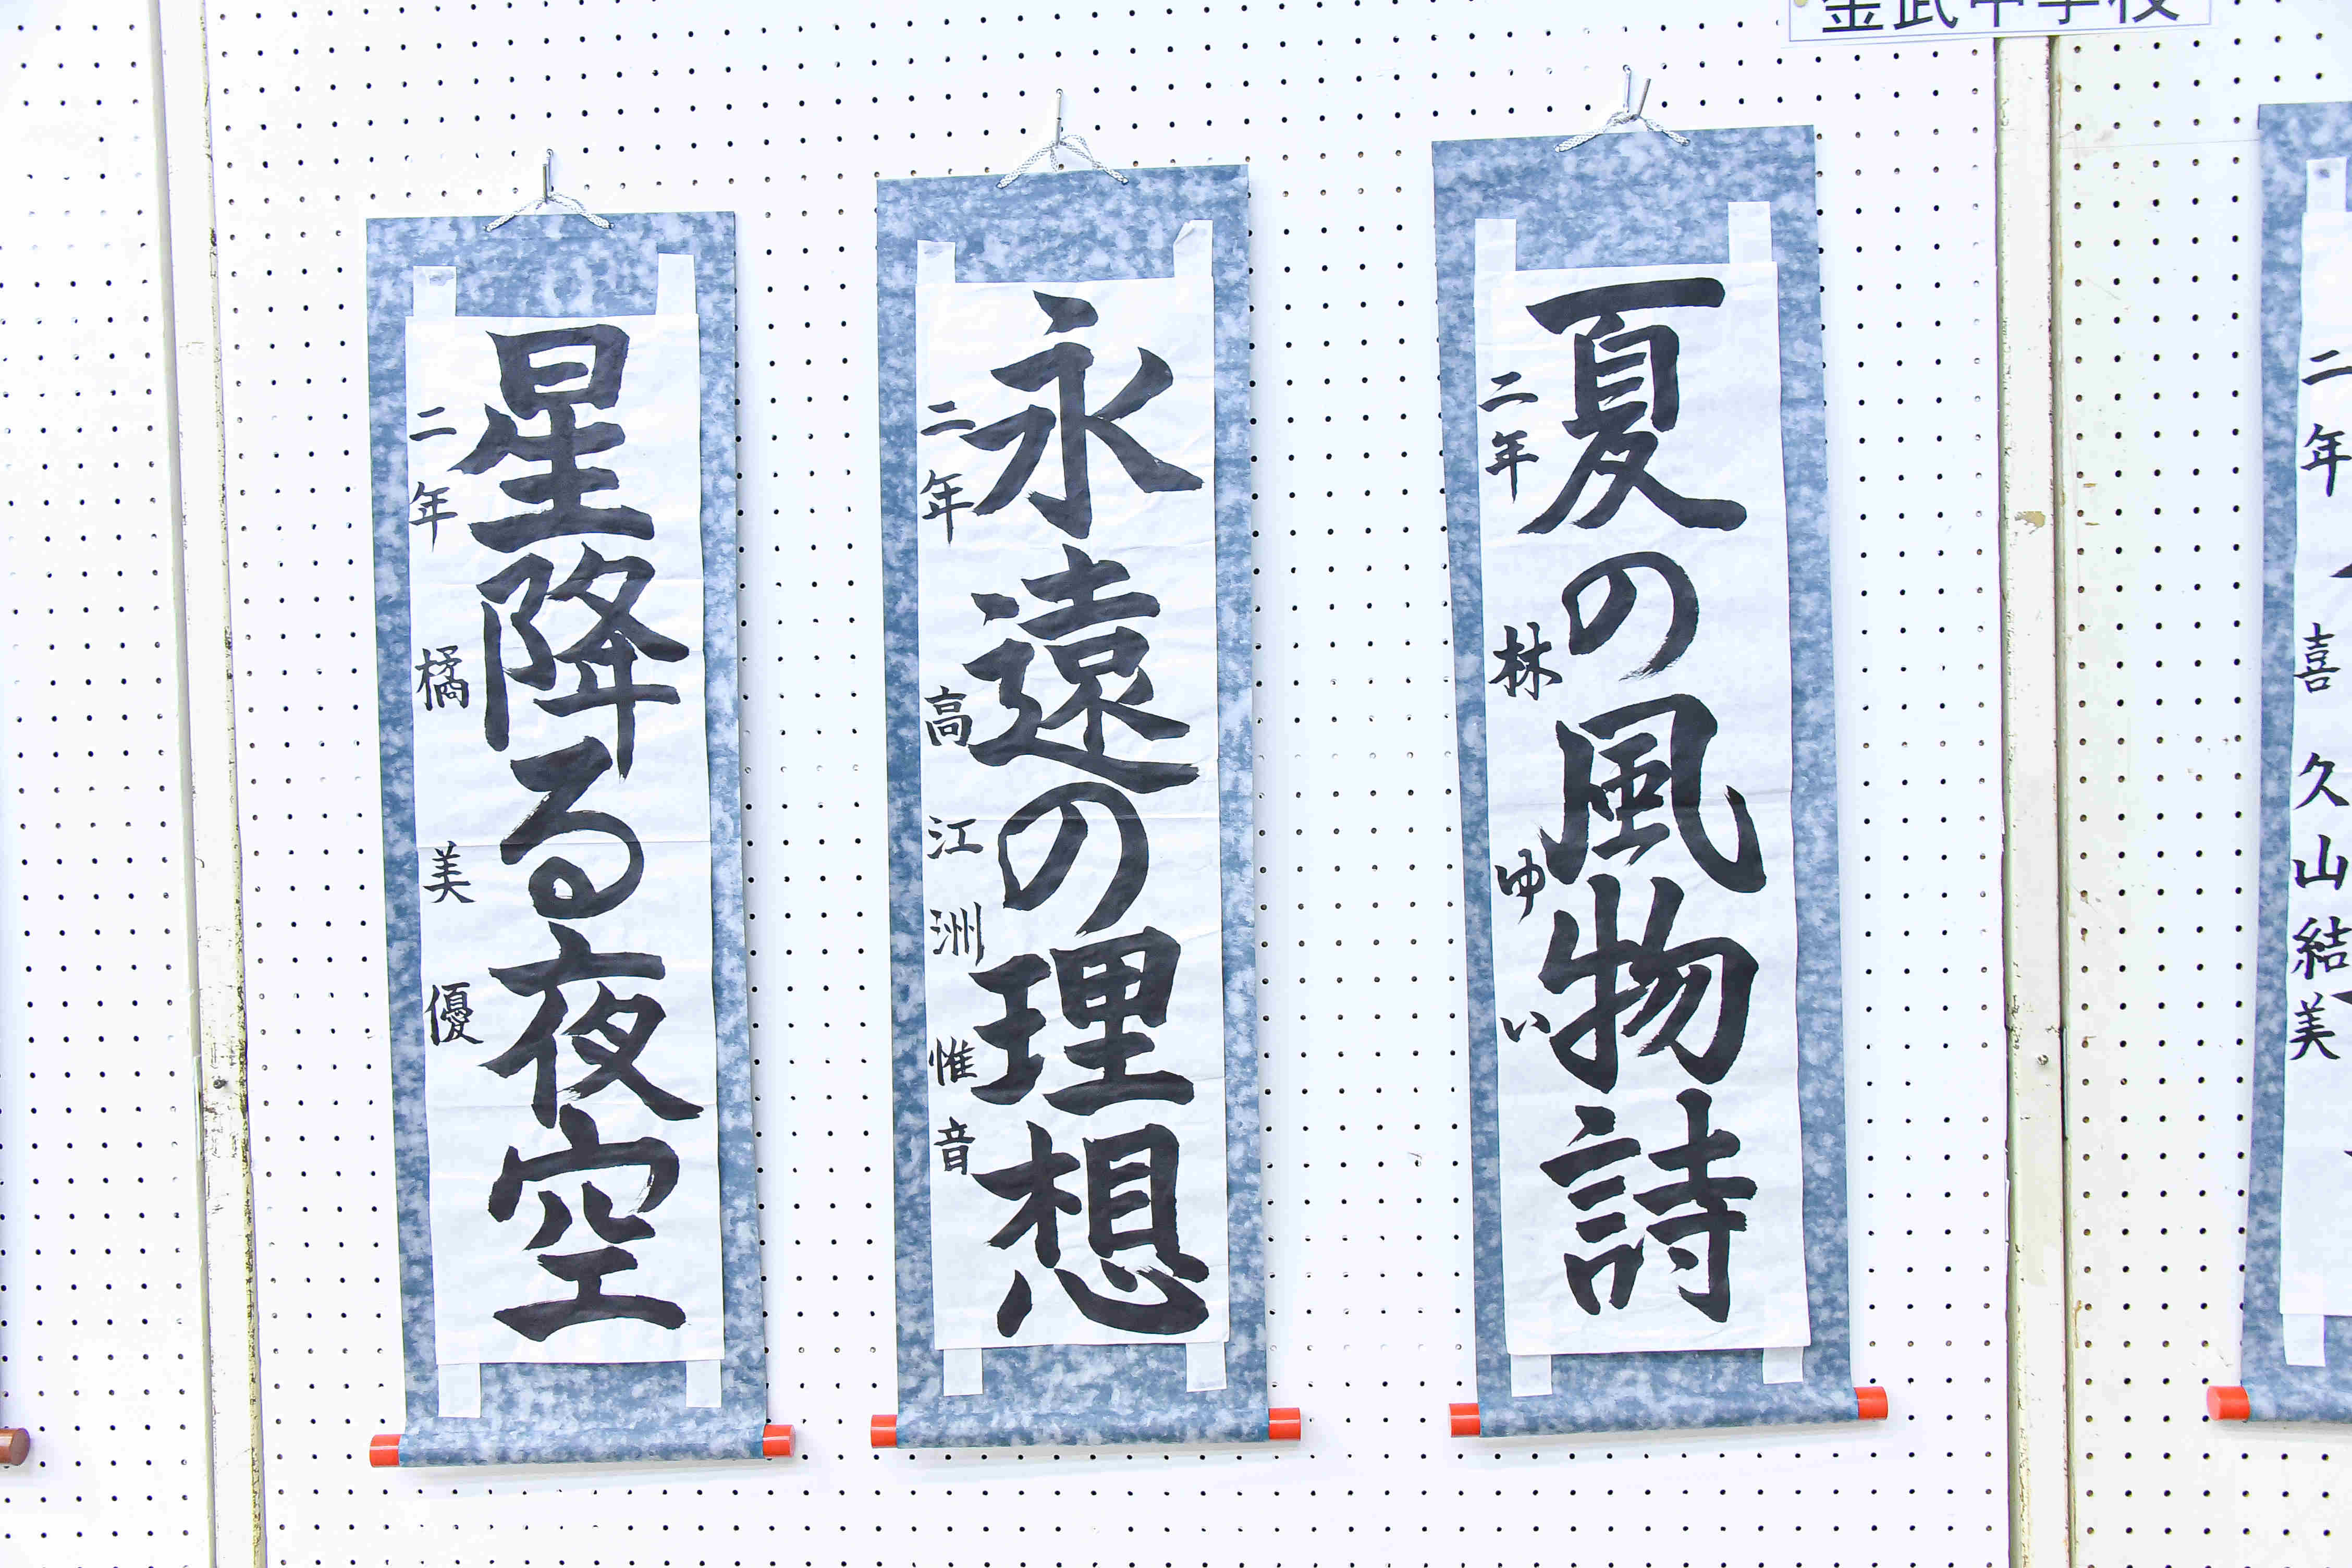 金武中学校
二年 喜久山結美
夏の風物詩
二年 林 ゆい
永遠の理想
二年 高江洲惟音
星降る夜空
二年 橘 美優